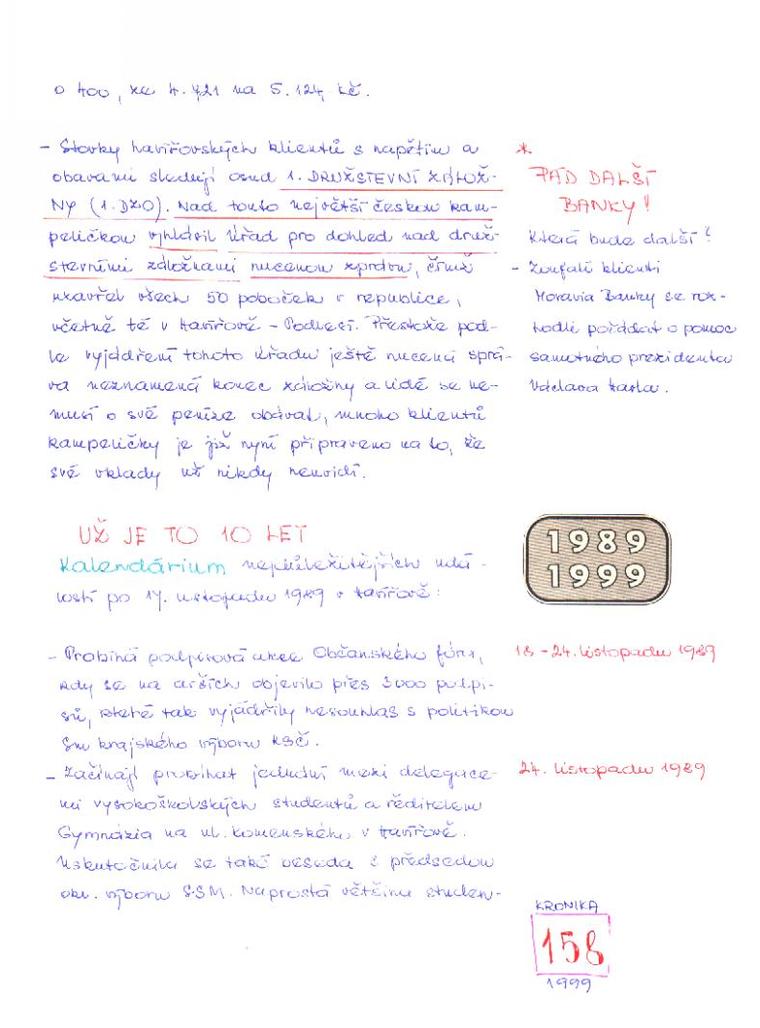 o 400, ze 4.721 na 5.124 kč.
- Stovky havířovských klientů s napětím a
obavami sledují osud 1. DRUŽSTEVNÍ ZÁLOŽ-
NY (1. DZO). Nad touto největší českou kam-
peličkou vyhlásil Úřad pro dohled nad druž-
stevními záložnami nucenou správu, čímž
uzavřel všech 50 poboček v republice,
včetně té v Havířově - Podlesí. Přestože pod-
le vyjádření tohoto úřadu ještě nucená sprá-
va neznamená konec záložny a lidé se ne-
musí o své peníze obávat, mnoho klientů
kampeličky je již nyní připraveno na to, že
své vklady už nikdy neuvidí.
*
PÁD DALŠÍ
BANKY!
Která bude další?
- Zoufalí klienti
Moravia Banky se roz-
hodli požádat o pomoc
samotného prezidenta
Václava Havla.
UŽ JE TO 10 LET
Kalendárium nejdůležitějších udá-
lostí po 17. listopadu 1989 v Havířově:
1989
1999
- Probíhá podpisová akce Občanského fóra,
kdy se na arších objevilo přes 3000 podpi-
sů, které tak vyjádřily nesouhlas s politikou
krajského výboru KSČ.
18 - 24. listopadu 1989
- Začínají probíhat jednání mezi delegace-
mi vysokoškolských studentů a ředitelem
Gymnázia na ul. Komenského v Havířově.
Uskutečnila se také beseda s předsedou
okr. výboru SSM. Naprostá většina studen-
24. listopadu 1989
KRONIKA
158
1999